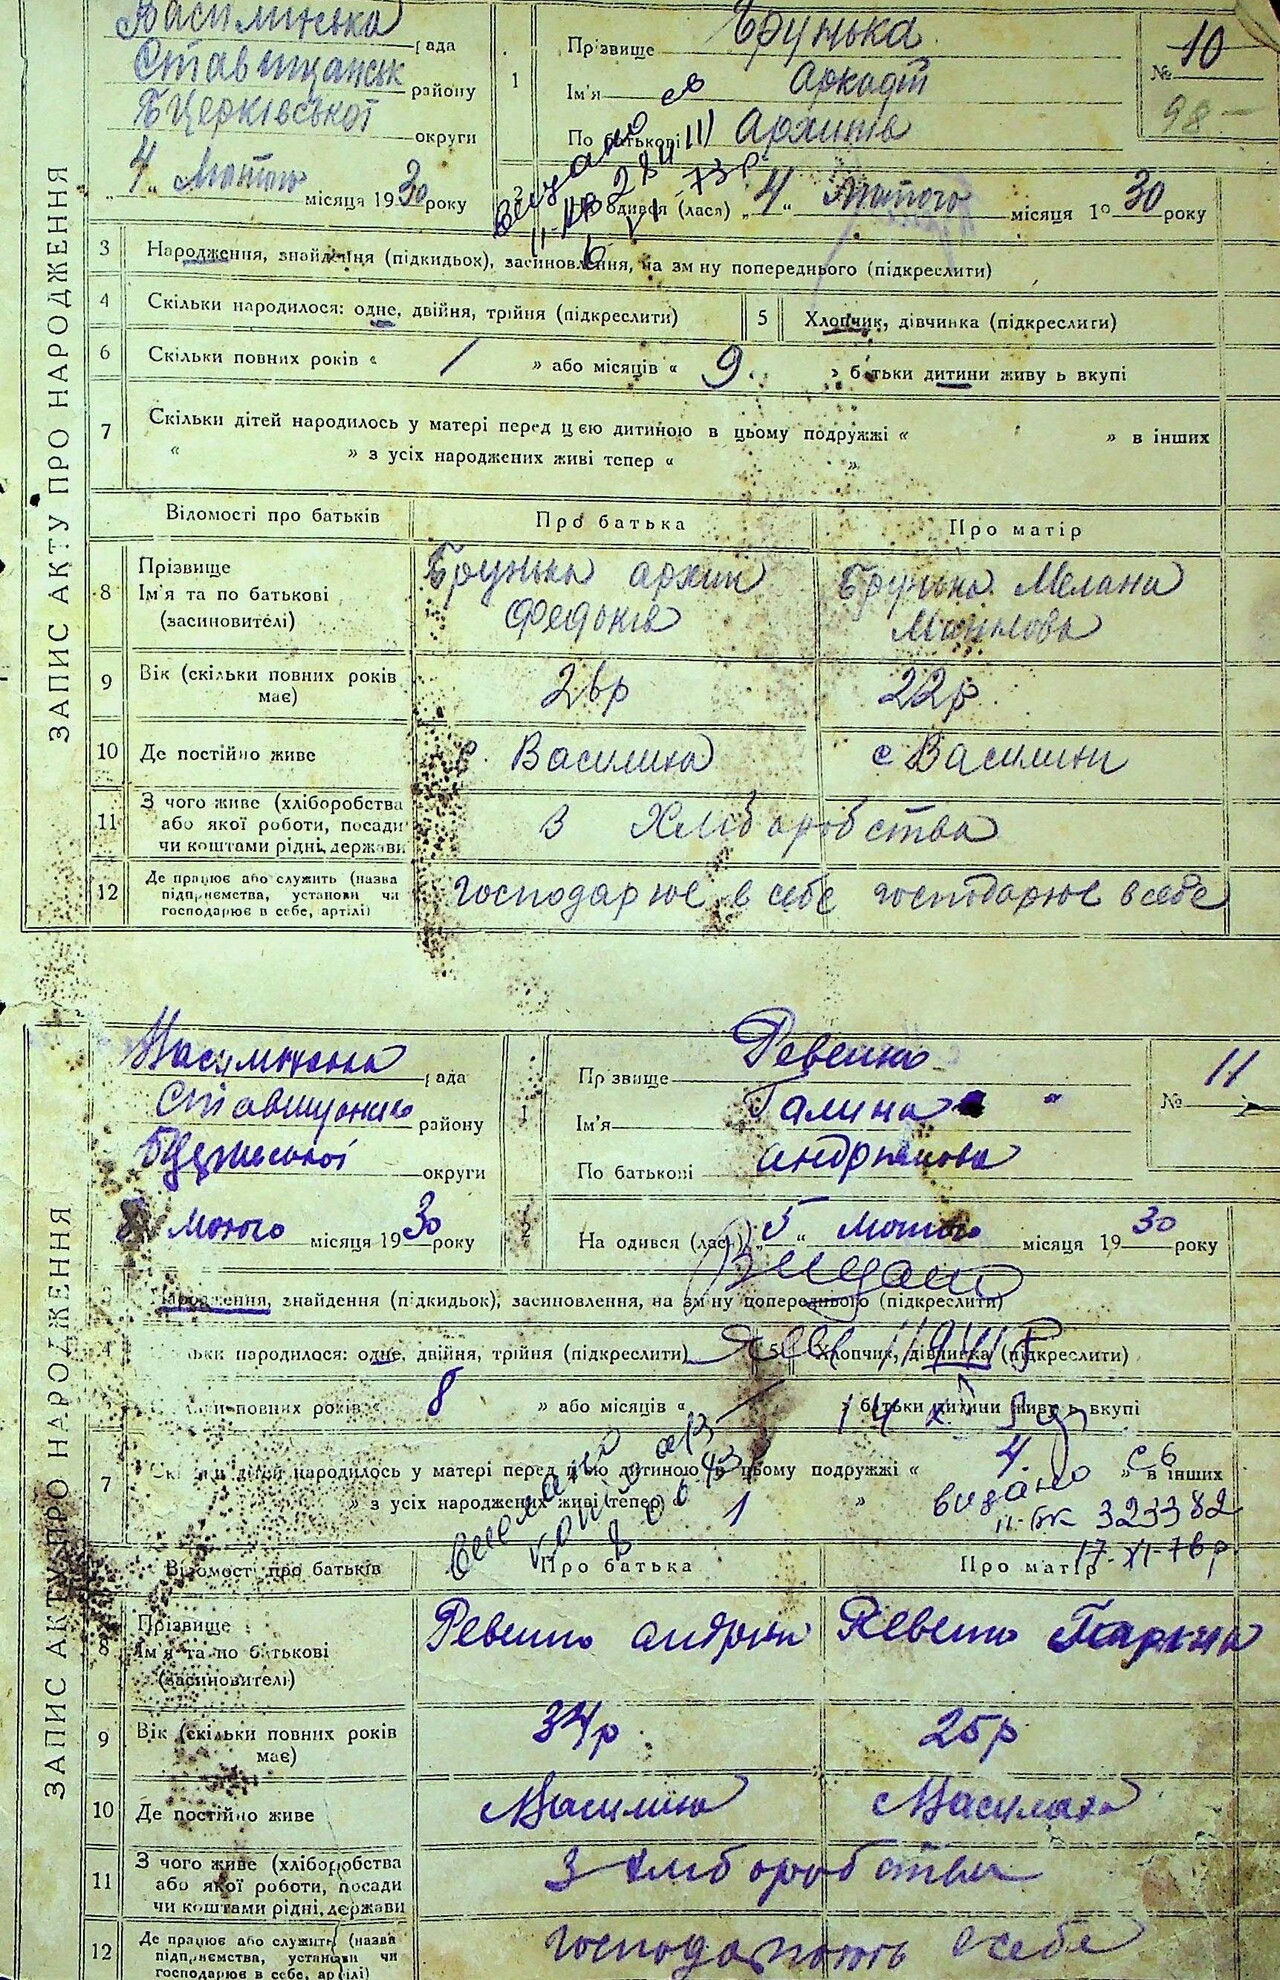 ЗАПИС АКТУ ПРО НАРОДЖЕННЯ
Василинська рада
району
Б Церківської округи
4 Лютого місяця 1930 року
1
Прізвище Брунька
Ім'я Аркадій
По батькові Архипів
№ 10
98
одився (лася) „4“ Лютого місяця 1930 року
3 Народження, знайдення (підкидьок), засиновлення, на зміну попереднього (підкреслити)
4 Скільки народилося: одне, двійня, трійня (підкреслити)
5 Хлопчик, дівчинка (підкреслити)
6 Скільки повних років « / » або місяців « 9. » батьки дитини живуть вкупі
7 Скільки дітей народилось у матері перед цією дитиною в цьому подружжі « » в інших
« » з усіх народжених живі тепер « »
Відомості про батьків Про батька Про матір
8 Прізвище Ім'я та по батькові (засиновителі)
Брунька архип
Федьків
Брунька Мелана
9 Вік (скільки повних років має) 26р 22р
10 Де постійно живе с. Василиха с Василихи
11 З чого живе (хліборобства або якої роботи, посади чи коштами рідні, держави
З Хліборобства
12 Де працює або служить (назва підприємства, установи чи господарює в себе, артілі)
господарює в себе господарює в себе
ЗАПИС АКТУ ПРО НАРОДЖЕННЯ
рада
району
округи
Лютого місяця 1930 року
1
Прізвище Ревенко
Ім'я Галина
По батькові андріянова
№ 11
2 На одився (лась) „5“ Лютого місяця 1930 року
Видано
Народження, знайдення (підкидьок), засиновлення, на зміну попереднього (підкреслити)
4 народилося: одне, двійня, трійня (підкреслити)
5 Хлопчик, дівчинка (підкреслити)
повних років « 8 » або місяців « — » батьки дитини живуть вкупі
7 Скільки дітей народилось у матері перед цією дитиною в цьому подружжі « 4. » в інших
» з усіх народжених живі тепер « 1 »
видано
323382
17-XI-76р.
Відомості про батьків Про батька Про матір
8 Прізвище Ім'я та по батькові (засиновителі)
Ревенко андріян Ревенко
9 Вік (скільки повних років має) 34р 25р
10 Де постійно живе Василиха Василиха
11 З чого живе (хліборобства або якої роботи, посади чи коштами рідні, держави
З хліборобства
12 Де працює або служить (назва підприємства, установи чи господарює в себе, артілі)
господарюють в себе